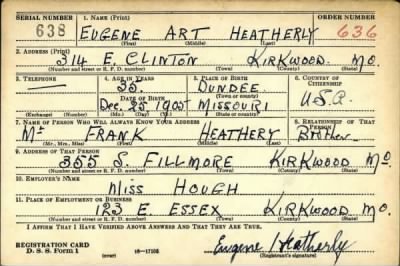 SERIAL NUMBER 1. NAME (Print) ORDER NUMBER
638 EUGENE ART HEATHERLY 636
(First) (Middle) (Last)
2. ADDRESS (Print)
314 E. CLINTON KIRKWOOD MO.
(Number and street or R. F. D. number) (Town) (County) (State)
3. TELEPHONE 4. AGE IN YEARS 5. PLACE OF BIRTH 6. COUNTRY OF CITIZENSHIP
35 DUNDEE
DATE OF BIRTH (Town or county)
Dec. 25 1905 MISSOURI U.S.A.
(Exchange) (Number) (Mo.) (Day) (Yr.) (State or country)
7. NAME OF PERSON WHO WILL ALWAYS KNOW YOUR ADDRESS 8. RELATIONSHIP OF THAT PERSON
Mr FRANK HEATHERY Brother
(Mr., Mrs., Miss) (First) (Middle) (Last)
9. ADDRESS OF THAT PERSON
355 S. FILLMORE KIRKWOOD MO
(Number and street or R. F. D. number) (Town) (County) (State)
10. EMPLOYER'S NAME
Miss HOUGH
11. PLACE OF EMPLOYMENT OR BUSINESS
123 E. ESSEX KIRKWOOD MO.
(Number and street or R. F. D. number) (Town) (County) (State)
I AFFIRM THAT I HAVE VERIFIED ABOVE ANSWERS AND THAT THEY ARE TRUE.
REGISTRATION CARD
D. S. S. Form 1 (over) 16-17105 Eugene Heatherly
(Registrant's signature)